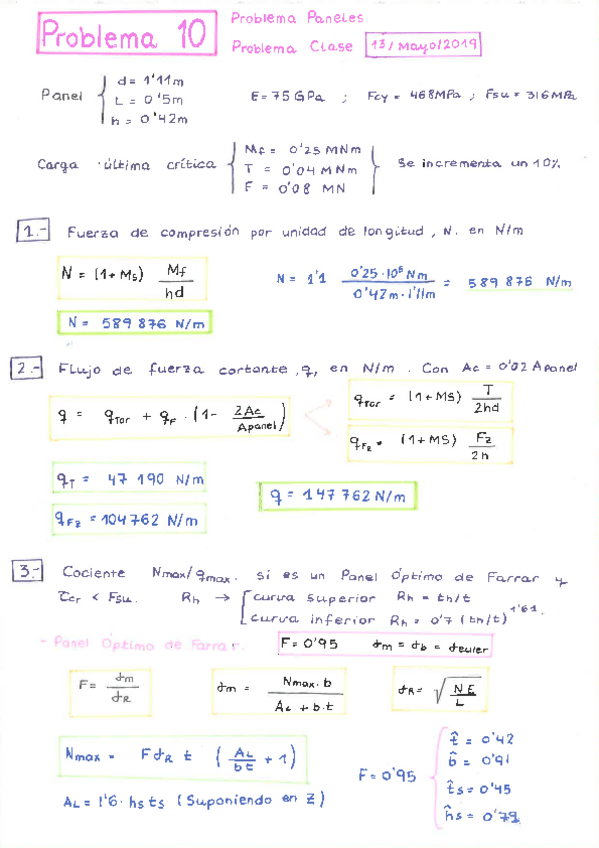 Problema 10
Problema Paneles
Problema Clase 13/Mayo/2019
Panel { d = 1'11m
L = 0'5m
h = 0'42m
E = 75 GPa ; Fcy = 468MPa ; Fsu = 316MPa
Carga última crítica { Mf = 0'25 MNm
T = 0'04 MNm
F = 0'08 MN }
Se incrementa un 10%
1.- Fuerza de compresión por unidad de longitud, N. en N/m
N = (1+Ms) Mf / hd
N = 1'1 0'25·10⁶ Nm / 0'42m·1'11m = 589 876 N/m
N = 589 876 N/m
2.- Flujo de fuerza cortante, q, en N/m. Con Ac = 0'02 Apanel
q = qTor + qF · (1- 2Ac / Apanel)
qTor = (1+MS) T / 2hd
qFz = (1+MS) Fz / 2h
qT = 47 190 N/m
qFz = 104762 N/m
q = 147 762 N/m
3.- Cociente Nmax/qmax. si es un Panel Óptimo de Farrar y
τcr < Fsu. Rh → [ curva superior Rh = th/t
curva inferior Rh = 0'7 (th/t)^1'61.
- Panel Óptimo de Farrar.
F = 0'95 σm = σb = σeuler
F = σm / σR
σm = Nmax·b / AL + b·t
σR = √ NE / L
Nmax = F σR t ( AL / bt + 1 )
AL = 1'6· hs ts (Suponiendo en Z)
F = 0'95 { t̂ = 0'42
b̂ = 0'91
t̂s = 0'45
ĥs = 0'79